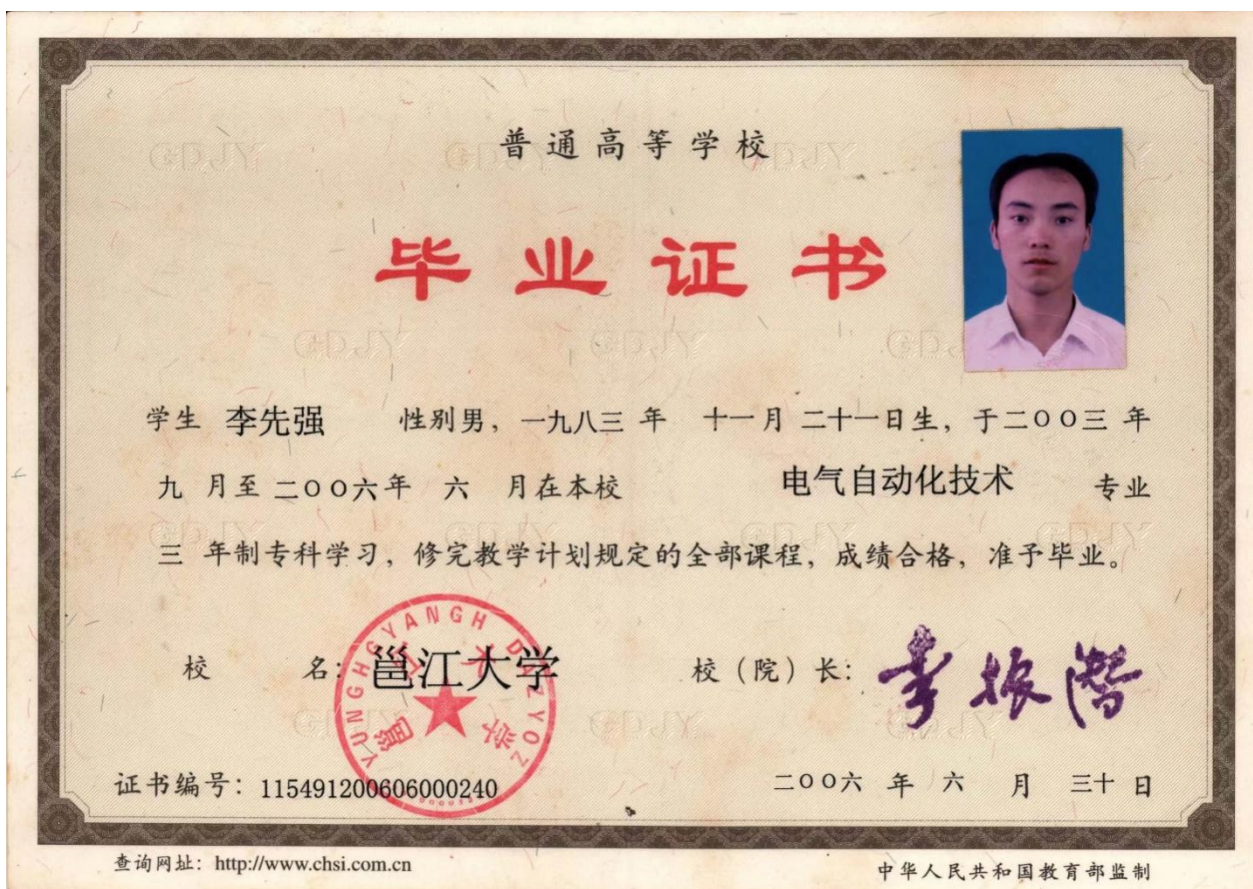 普通高等学校
毕业证书
学生 李先强 性别男，一九八三 年 十一月 二十一日生，于二OO三 年
九 月至 二OO六年 六 月在本校 电气自动化技术 专业
三 年制专科学习，修完教学计划规定的全部课程，成绩合格，准予毕业。
校 名：邕江大学 校（院）长：李振潜
YUNGHGYANGH DAZYOZ
邕江大学
证书编号：115491200606000240 二OO六 年 六 月 三十 日
查询网址：http://www.chsi.com.cn 中华人民共和国教育部监制